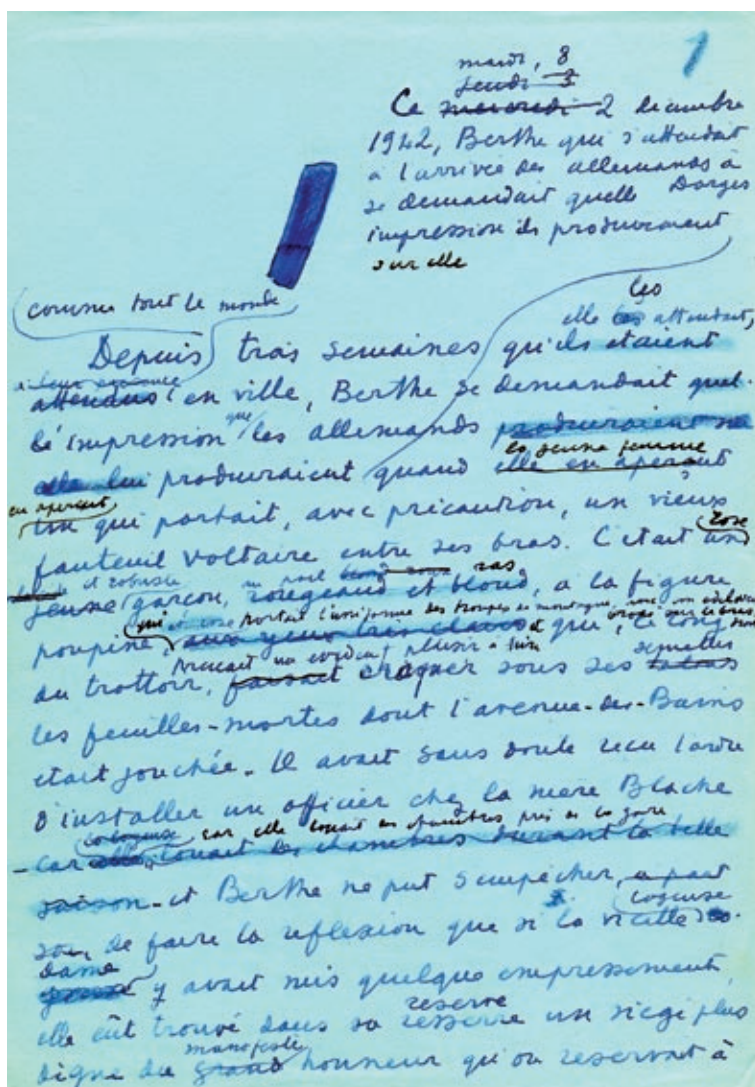 1
mardi, 8
jeudi 3
Ce mercredi 2 décembre
1942, Berthe qui s'attendait
à l'arrivée des allemands à
se demandait quelle Dorges
impression ils produiraient
sur elle
comme tout le monde
les
elle les attendait,
Depuis trois semaines qu'ils étaient
attendus en ville, Berthe se demandait quel-
le impression que les allemands produiraient
la jeune femme
elle lui produiraient quand elle en aperçut
en aperçut
un qui portait, avec précaution, un vieux
fauteuil voltaire entre ses bras. C'était un
rose
et robuste ras,
jeune garçon, rougeaud et blond, à la figure
qui portait l'uniforme des troupes de montagne, avec un edelweiss
poupine, aux yeux très clairs et qui, le long
prenait un évident plaisir à faire semelles
du trottoir, faisait craquer sous ses talons
les feuilles-mortes dont l'avenue-des-Bains
était jonchée. Il avait sans doute reçu l'ordre
d'installer un officier chez la mère Blache
logeuse car elle louait des chambres près de la gare
- car elle louait des chambres durant la belle
saison - et Berthe ne put s'empêcher, à part
logeuse
soi, de faire la réflexion que si la vieille
dame
y avait mis quelque empressement,
reserve
elle eût trouvé dans sa resserre un siège plus
manifeste
digne du grand honneur qu'on réservait à